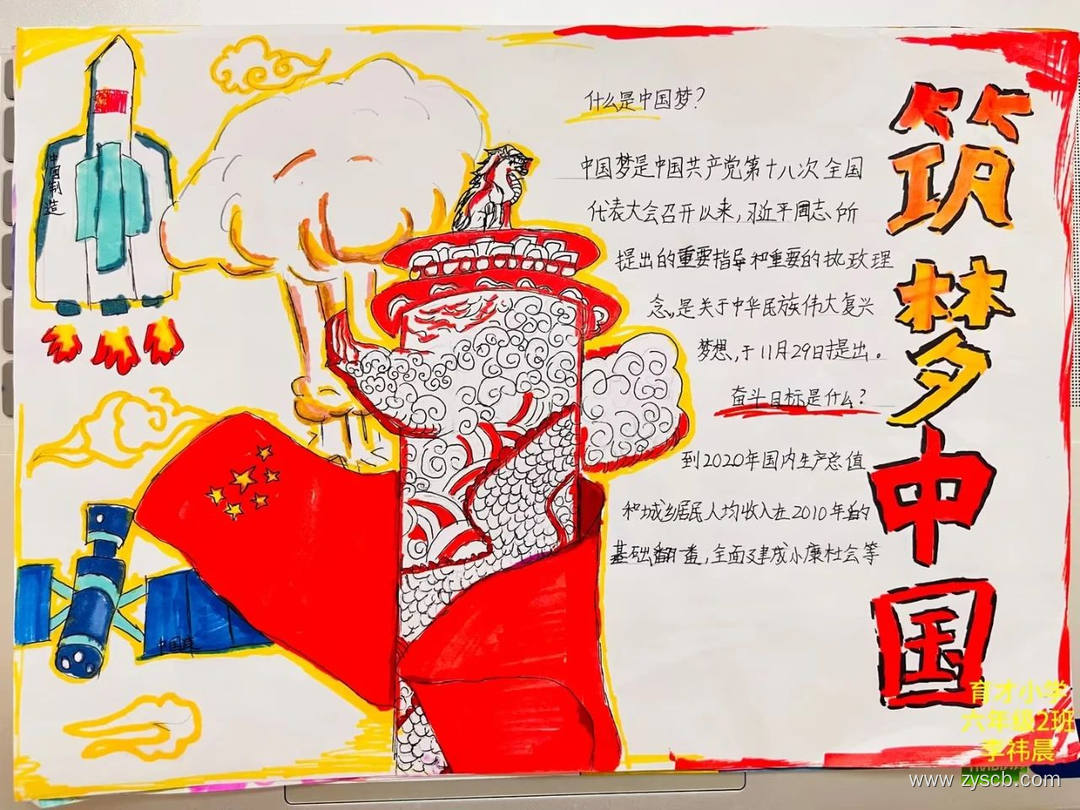 筑梦中国
什么是中国梦?
中国梦是中国共产党第十八次全国
代表大会召开以来,习近平同志所
提出的重要指导和重要的执政理
念,是关于中华民族伟大复兴
梦想,于11月29日提出。
奋斗目标是什么?
到2020年国内生产总值
和城乡居民人均收入在2010年的
基础翻番,全面建成小康社会等
中国制造
育才小学
六年级2班
李祎晨
www.zyscb.com